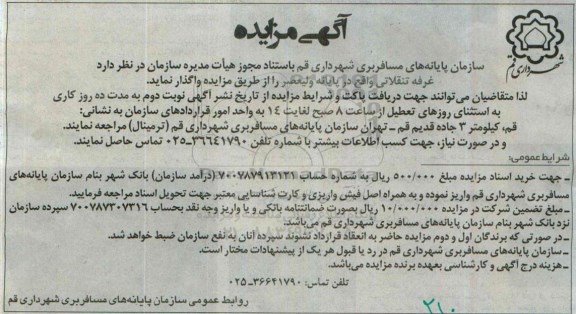 آگهی مزایده
شهرداری قم
سازمان پایانه‌های مسافربری شهرداری قم باستناد مجوز هیأت مدیره سازمان در نظر دارد
غرفه تنقلاتی واقع در پایانه ولیعصر را از طریق مزایده واگذار نماید.
لذا متقاضیان می‌توانند جهت دریافت پاکت و شرایط مزایده از تاریخ نشر آگهی نوبت دوم به مدت ده روز کاری
به استثنای روزهای تعطیل از ساعت ۸ صبح لغایت ۱۴ به واحد امور قراردادهای سازمان به نشانی:
قم، کیلومتر ۳ جاده قدیم قم ـ تهران سازمان پایانه‌های مسافربری شهرداری قم (ترمینال) مراجعه نمایند.
و در صورت نیاز، جهت کسب اطلاعات بیشتر با شماره تلفن ۳۶۶۴۱۷۹۰-۰۲۵ تماس حاصل نمایند.
شرایط عمومی:
ـ جهت خرید اسناد مزایده مبلغ ۵۰۰/۰۰۰ ریال به شماره حساب ۷۰۰۷۸۷۹۱۳۱۳۱ (درآمد سازمان) بانک شهر بنام سازمان پایانه‌های
مسافربری شهرداری قم واریز نموده و به همراه اصل فیش واریزی و کارت شناسایی معتبر جهت تحویل اسناد مراجعه فرمایید.
ـ مبلغ تضمین شرکت در مزایده ۱۰/۰۰۰/۰۰۰ ریال بصورت ضمانتنامه بانکی و یا واریز وجه نقد بحساب ۷۰۰۷۸۷۳۰۷۳۱۶ سپرده سازمان
نزد بانک شهر بنام سازمان پایانه‌های مسافربری شهرداری قم می‌باشد.
ـ در صورتی که برندگان اول و دوم مزایده حاضر به انعقاد قرارداد نشوند سپرده آنان به نفع سازمان ضبط خواهد شد.
ـ سازمان پایانه‌های مسافربری شهرداری قم در رد یا قبول هر یک از پیشنهادات مختار است.
ـ هزینه درج آگهی و کارشناسی بعهده برنده مزایده می‌باشد.
تلفن تماس: ۳۶۶۴۱۷۹۰-۰۲۵
روابط عمومی سازمان پایانه‌های مسافربری شهرداری قم
۲۱۰